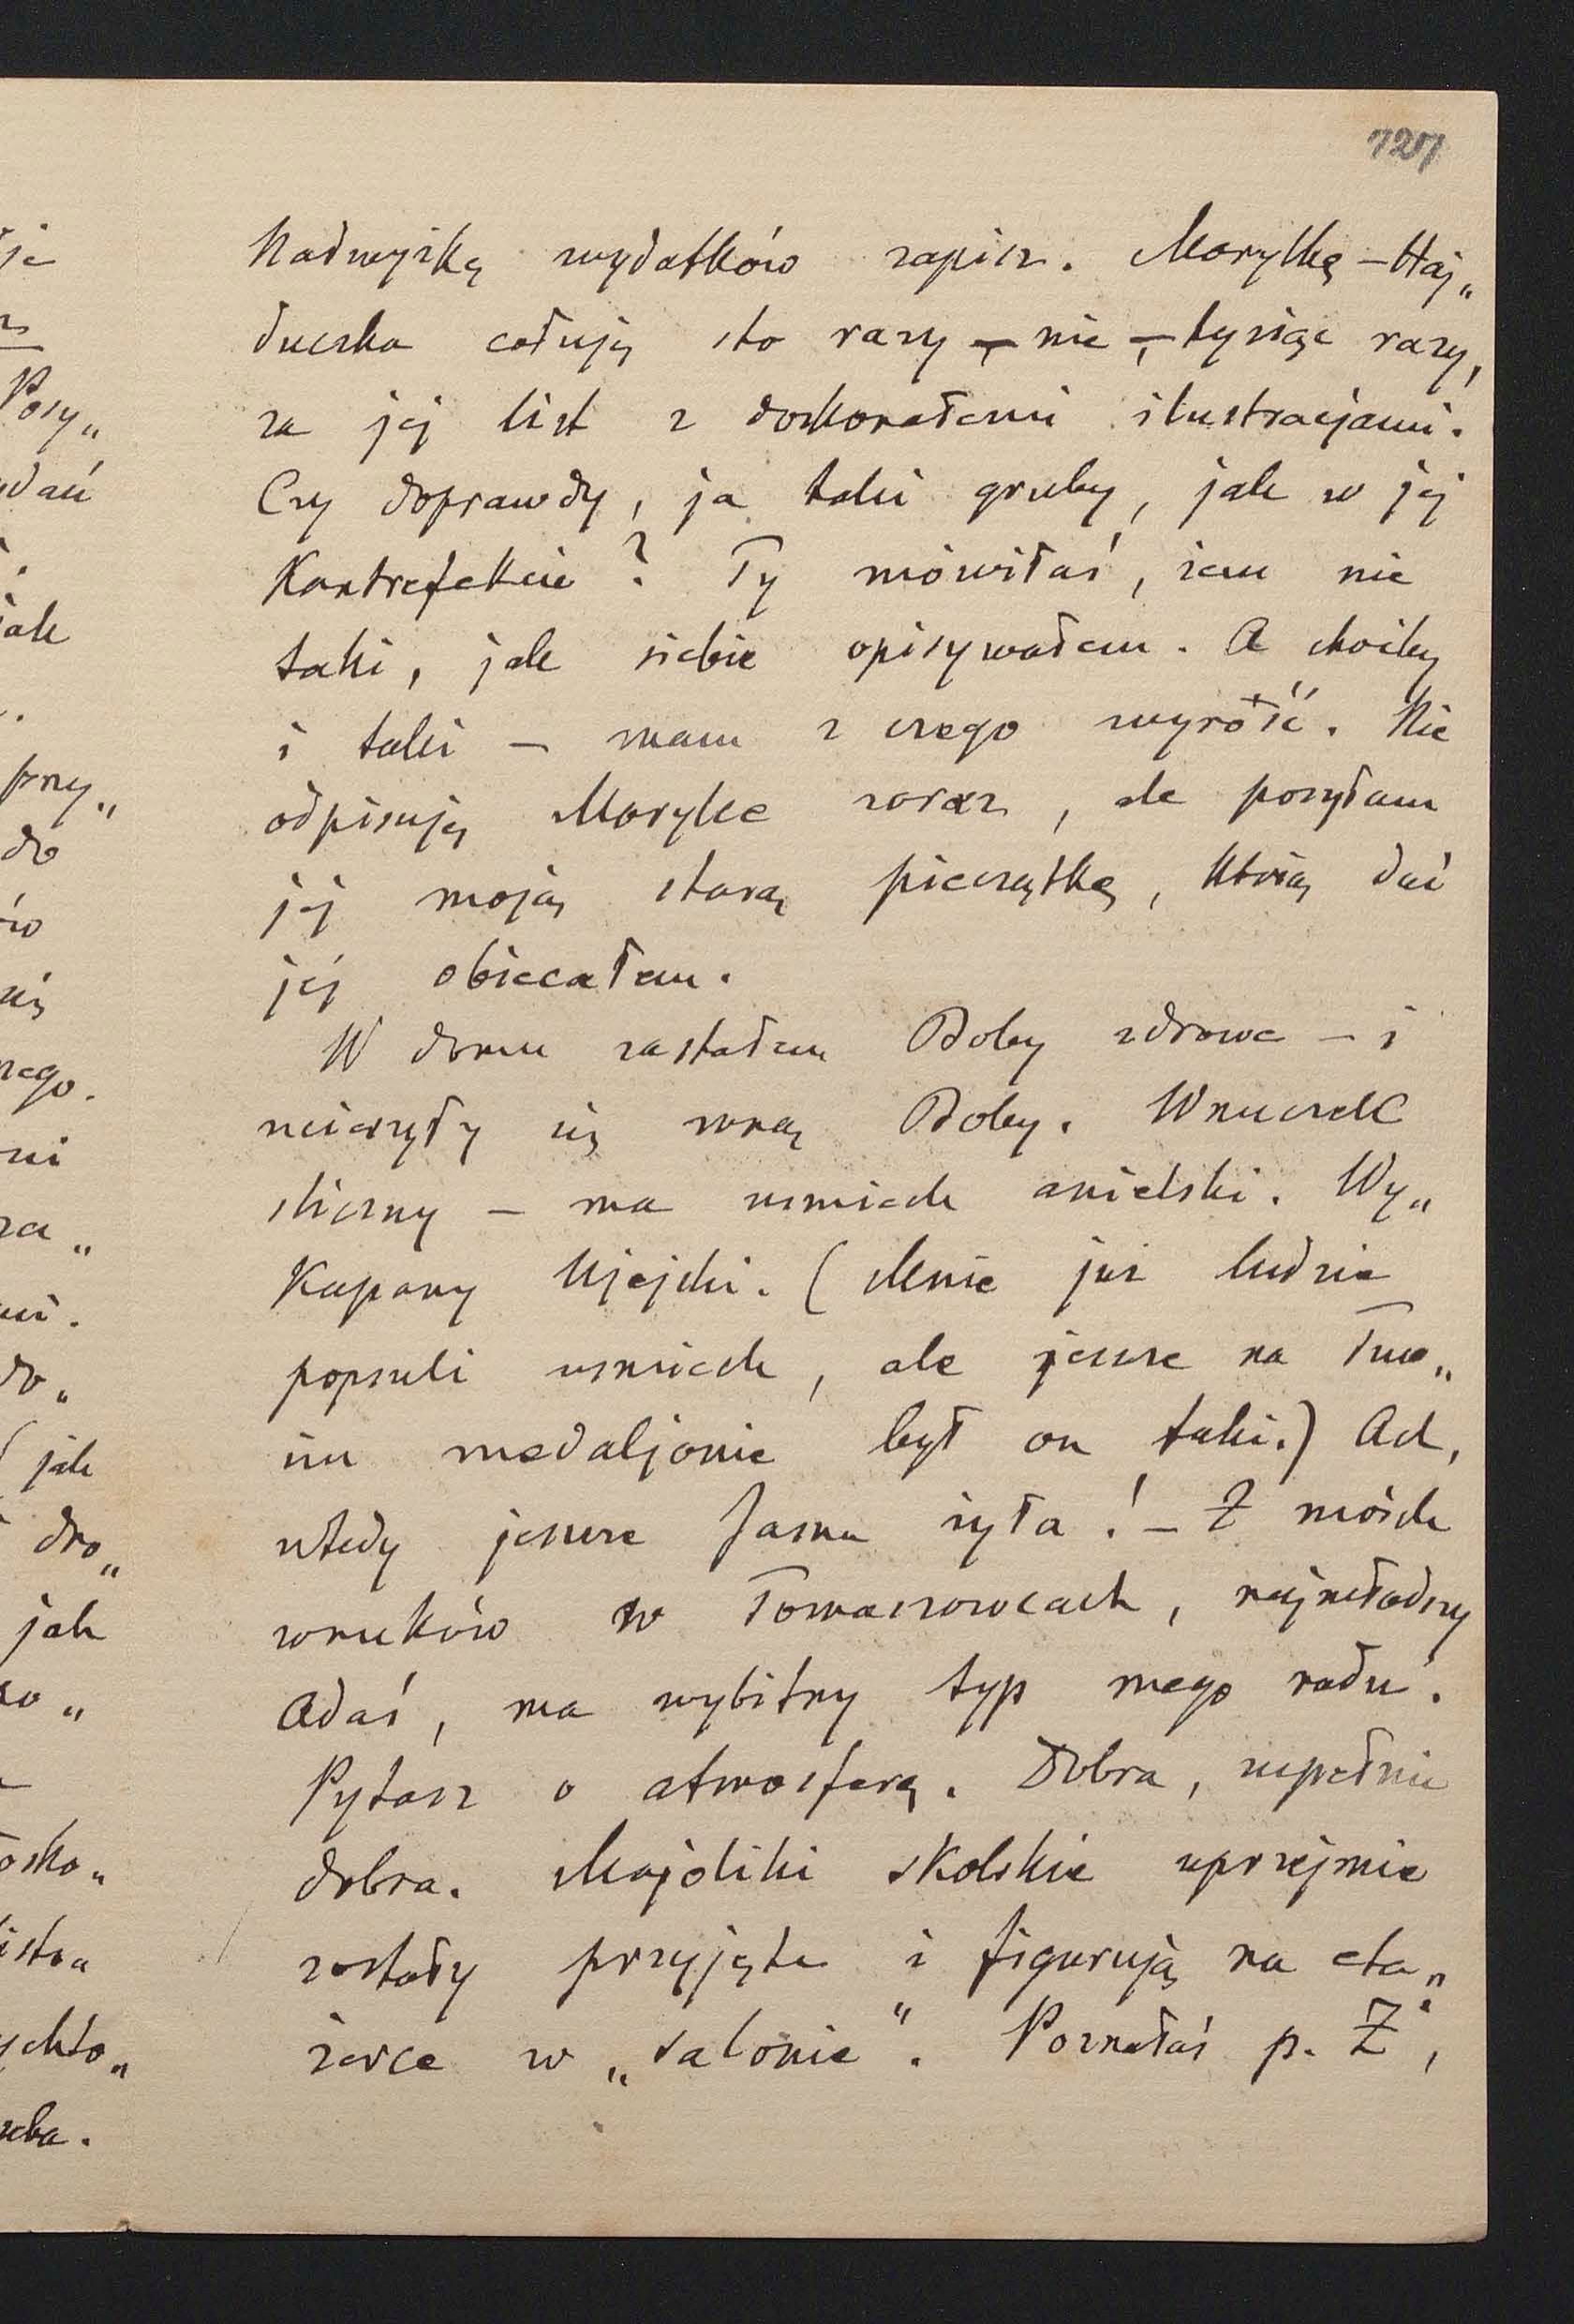 127
Nadwyżkę wydatków zapisz. Marylkę – Haj„
duczka całuję sto razy – nie – tysiąc razy,
za jej list z doskonałemi ilustracjami.
Czy doprawdy, ja taki gruby, jak w jej
Kontrefekcie? Ty mówiłaś, żem nie
taki, jak siebie opisywałem. A choćby
i taki – mam z czego wyróść. Nie
odpisuję Marylce zaraz, ale posyłam
jej moją starą pieczątkę, którą dać
jej obiecałem.
W domu zastałem Boby zdrowe – i
ucieszyły się mną Boby. Wnuczek
śliczny – ma uśmiech anielski. Wy„
kapany Ujejski. (Mnie już ludzie
popsuli uśmiech, ale jeszcze na Two„
im medaljonie był on taki.) Ach,
wtedy jeszcze Jasna żyła! – Z moich
wnuków w Tomaszowcach, najmłodszy
Adaś, ma wybitny typ mego rodu.
Pytasz o atmosferę. Dobra, zupełnie
dobra. Majoliki skolskie uprzejmie
zostały przyjęte i figurują na eta„
żerce w „salonie". Poznałaś p. Ż,
je
Posy„
jak
przy„
do
ów
nego.
ni
za„
do„
jak
dro„
jak